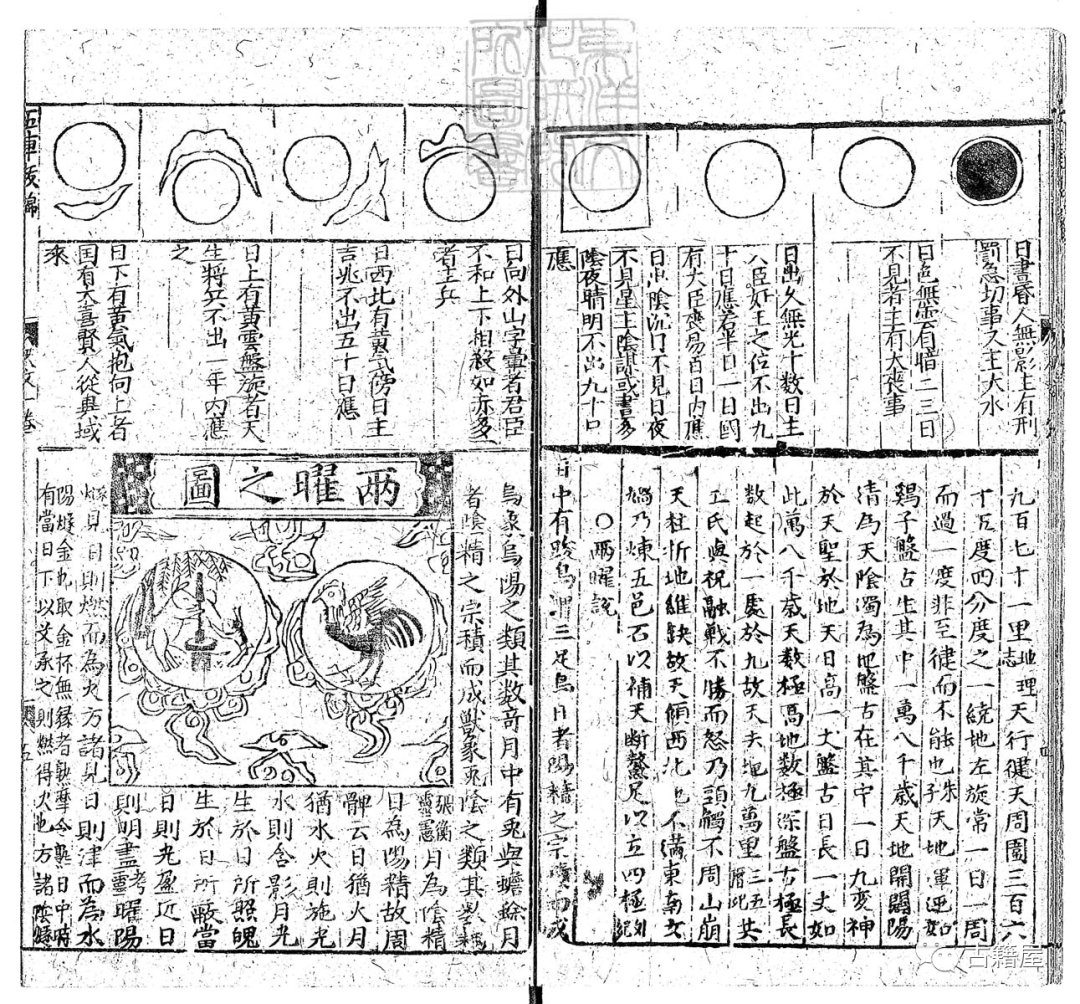 日晝昏人無影主有刑
罰急切事又主大水
日色無雲有暗二三日
不見者主有大喪事
日出久無光十数日主
八臣奸王之位不出九
十日應若半日一日國
有大臣喪易百日内應
不見星主陰謀或晝多
陰夜晴明不出九十
應
九百七十一里地理志天行健天周圍三百六
十五度四分度之一繞地左旋常一日一周
而過一度非至律而不能也朱天地渾沌如
鷄子盤古生其中一萬八千歲天地開闢陽
清為天陰濁為地盤古在其中一日九變神
於天聖於地天日高一丈盤古日長一丈如
此萬八千歲天数極高地数極深盤古極長
数起於一處於九故天去地九萬里三五
工氏與祝融戰不勝而怒乃頭觸不周山崩
天柱折地維缺故天傾西北地不滿東南女
媧乃煉五色石以補天断鰲足以立四極
〇兩曜說
日中有踆烏謂三足烏日者陽精之宗積而成
日向外山字彙者君臣
不和上下相殺如赤多
者主兵
日西北有黃氣傍日主
吉兆不出五十日應
日上有黃雲盤旋者天
生將兵不出一年内應
之
日下有黃氣抱向上者
国有大喜賢人從異域
來
五車拔錦
兩曜之圖
烏象烏陽之類其数竒月中有兎與蟾蜍月
者陰精之宗積而成獸象兎陰之類其数耦
張衡靈憲月為陰精
日為陽精故周
髀云日猶火月
猶水火則施光
水則含影月光
生於日所照魄
生於日所蔽當
日則光盈近日
則明盡靈曜陽
燧見日則燃而為火方諸見日則津而為水
陽燧金也取金杯無縁者執摩令熱日中時
有當日下以艾承之則燃得火也方諸陰燧
五
古籍屋